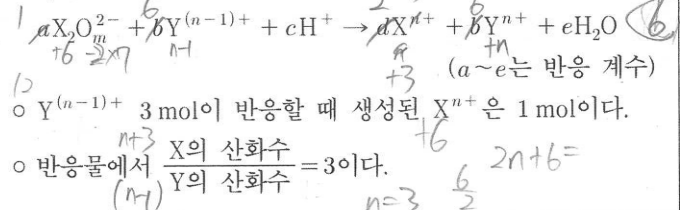 1 6 2 6
aX₂Oₘ²⁻ + bY⁽ⁿ⁻¹⁾⁺ + cH⁺ → dXⁿ⁺ + bYⁿ⁺ + eH₂O 6
+6 -2×7 n-1 +3 +n
(a~e는 반응 계수)
○ Y⁽ⁿ⁻¹⁾⁺ 3 mol이 반응할 때 생성된 Xⁿ⁺은 1 mol이다.
n+3 +6
○ 반응물에서 X의 산화수/Y의 산화수 = 3이다. 2n+6=
(n-1) n=3 6/2